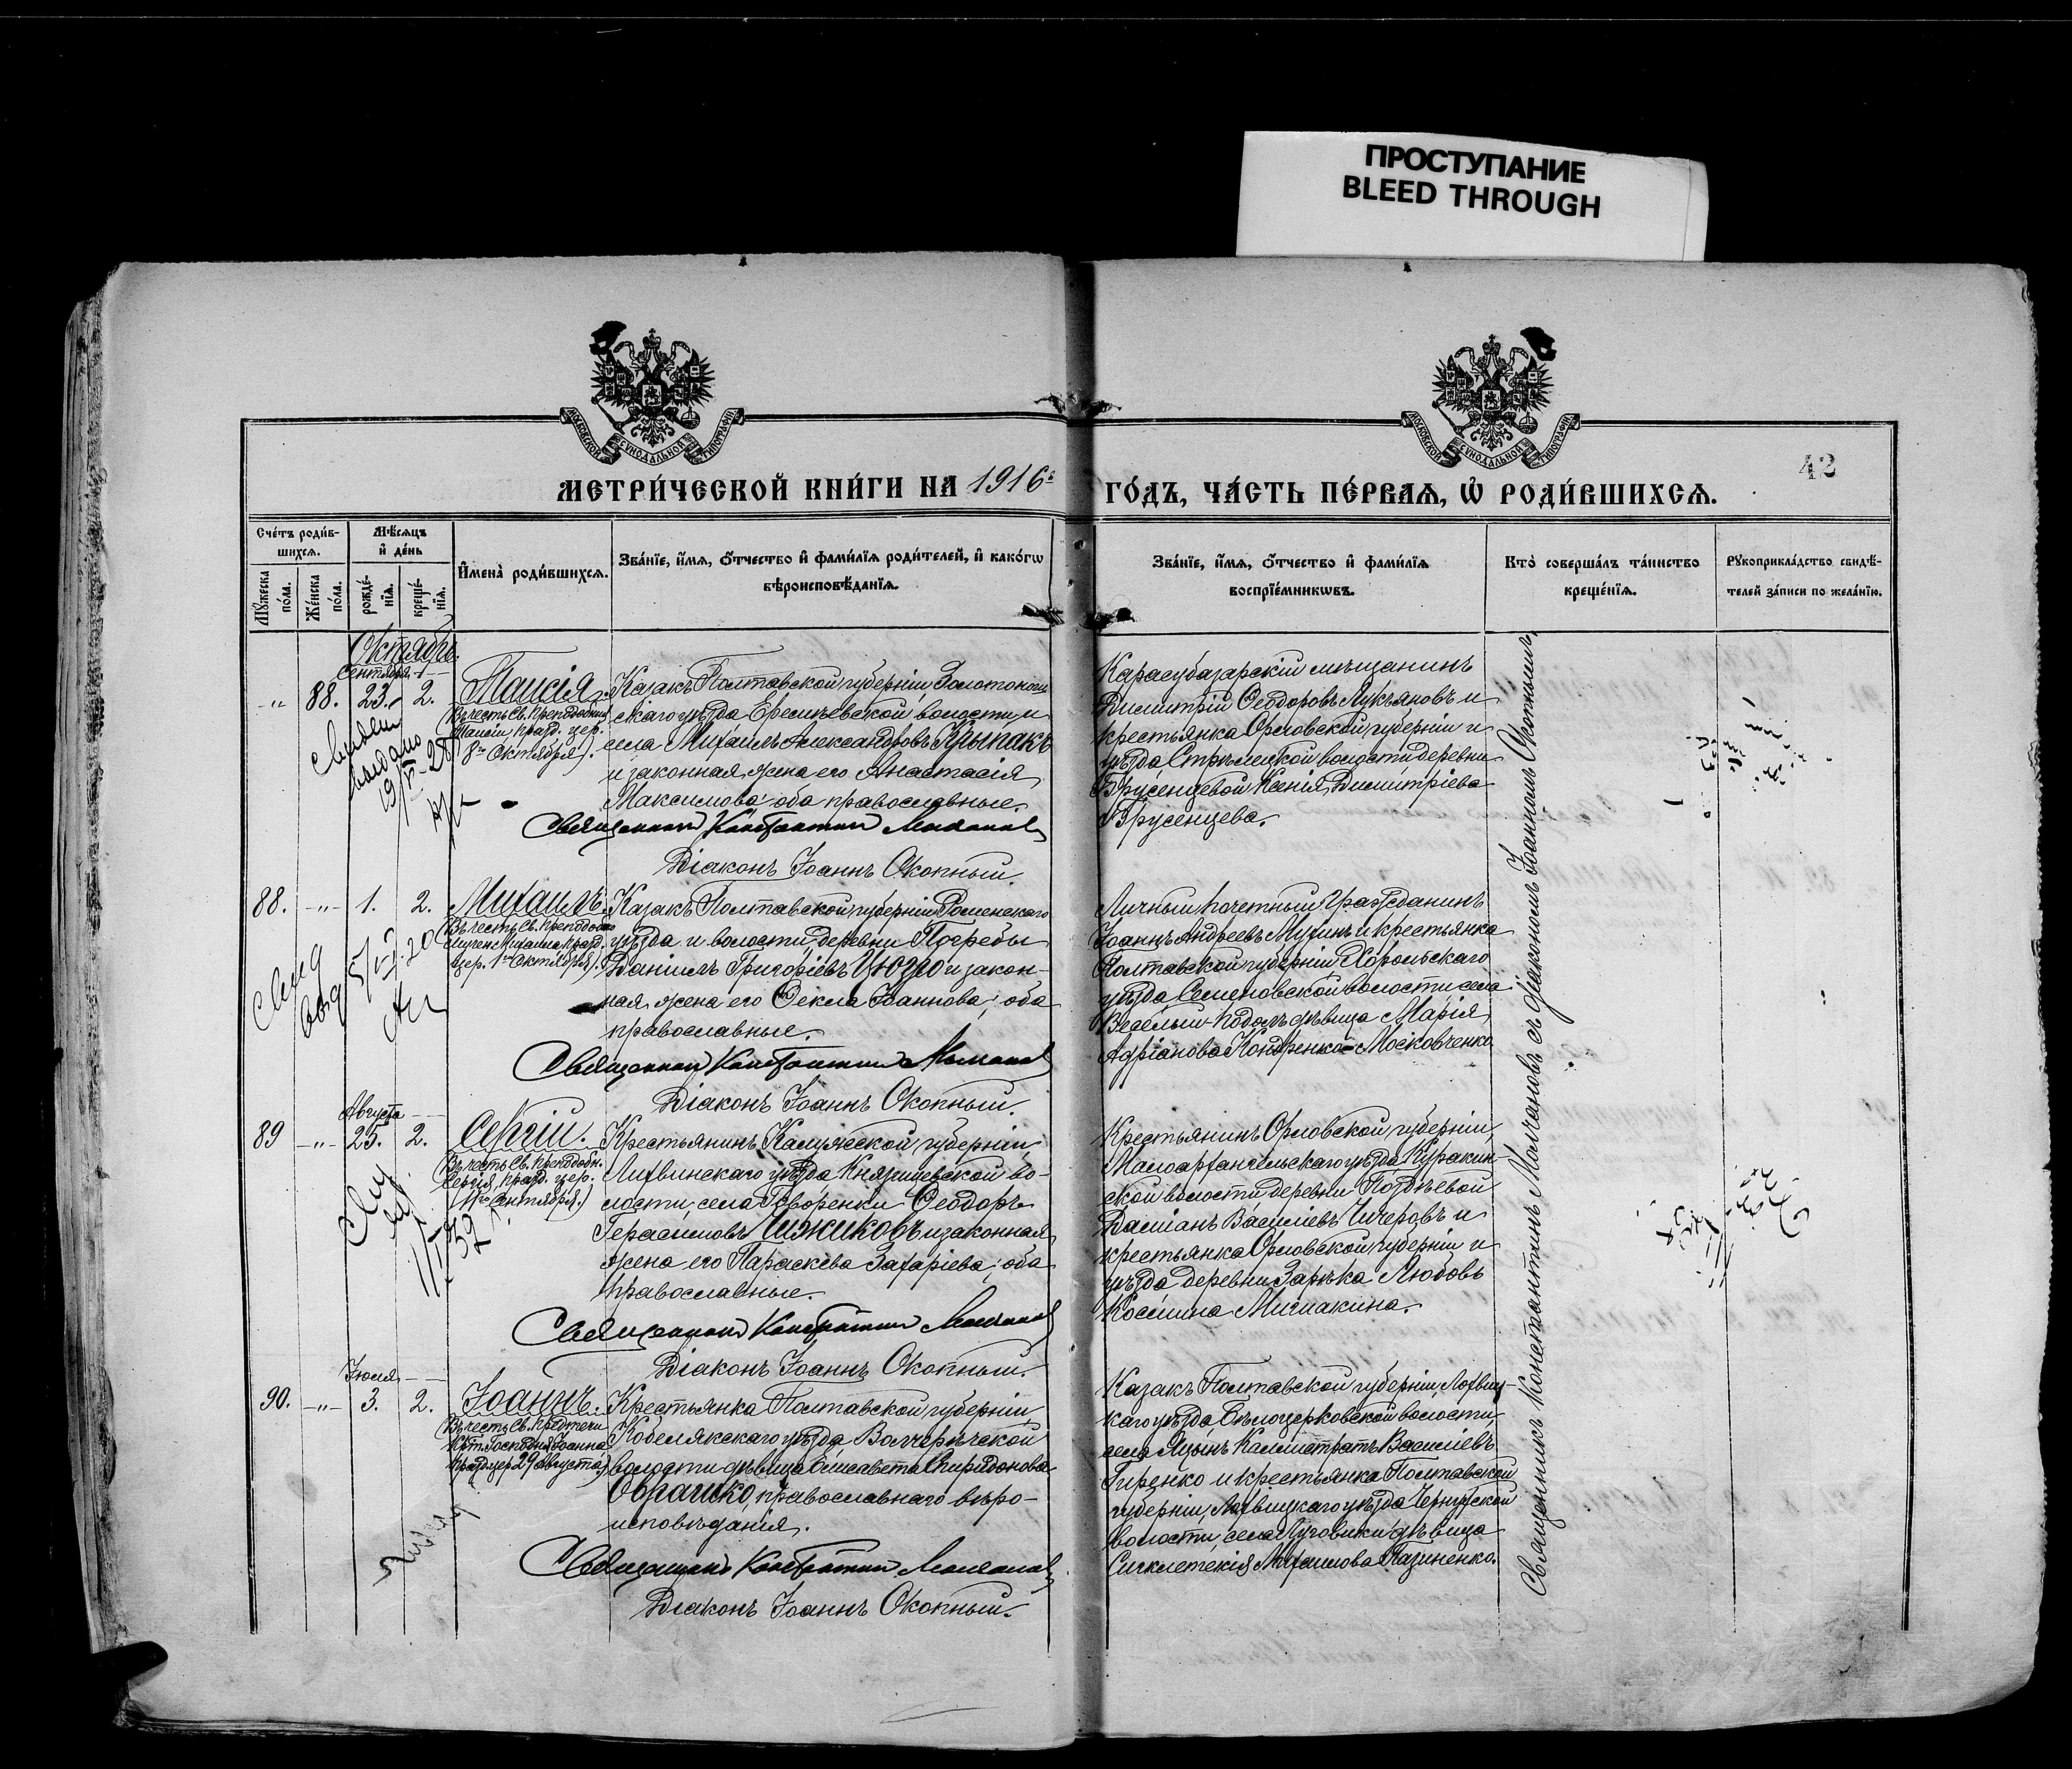 ПРОСТУПАНИЕ
BLEED THROUGH
МОСКОВСКОЙ СѴНОДАЛЬНОЙ ТИПОГРАФІИ
МОСКОВСКОЙ СѴНОДАЛЬНОЙ ТИПОГРАФІИ
42
МЕТРИ́ЧЕСКОЙ КНИ́ГИ НА 1916й ГО́ДЪ, ЧА́СТЬ ПЕ́РВАЯ, Ѡ РОДИ́ВШИХСЯ.
Сче́тъ роди́в-
шихся.
Мѣ́сяцъ
и де́нь
Имена̀ роди́вшихся.
Зва́нїе, и́мя, о́тчество и фами́лїя роди́телей, и како́гѡ
вѣроисповѣ́данїя.
Зва́нїе, и́мя, о́тчество и фами́лїя
воспрїе́мникѡвъ.
Кто̀ соверша́лъ та́инство
креще́нїя.
Рꙋкоприкла́дство свидѣ́-
телей за́писи по жела́нїю.
Мꙋ́жеска
по́ла.
Же́нска
по́ла.
рожде́-
нїя.
креще́-
нїя.
Октябрь.
Сентября
-"- 88. 23. 2. Таисія.
(Въ честь Св. Преподобныя
Таисіи, празд. цер.
8го Октября).
Казакъ Полтавской губерніи, Золотонош-
скаго уѣзда, волости и
села Михаилъ Александровъ Крыпакъ
и законная жена его Анастасія
Максимова оба православные.
Священникъ Константинъ Молчановъ
Діаконъ Іоаннъ Окопный.
Карасубазарскій мѣщанинъ
Димитрій Ѳеодоровъ Лукьяновъ и
крестьянка Орловской губерніи и
уѣзда, Стрѣлецкой волости, деревни
Брусенцевой Ксенія Димитріева
Брусенцева.
выдано
88. -"- 1. 2. Михаилъ.
(Въ честь Св. Преподобно
мучен. Михаила, празд.
цер. 1го Октября).
Казакъ Полтавской губерніи, Роменскаго
уѣзда и волости, деревни Погребы
Даніилъ Григоріевъ Цюзю и закон-
ная жена его Ѳекла Іоаннова; оба
православные.
Священникъ Константинъ Молчановъ
Діаконъ Іоаннъ Окопный.
Личный почетный гражданинъ
Іоаннъ Андреевъ Мухинъ и крестьянка
Полтавской губерніи Хорольскаго
уѣзда Семеновской волости села
Веселый-Подолъ дѣвица Марія
Адріанова Кондренко-Московченко
Августа
89 -"- 25. 2. Сергій.
(Въ честь Св. Преподобн.
Сергія, празд. цер.
Крестьянинъ Калужской губерніи,
Лихвинскаго уѣзда Княжищевской во-
лости, села Говоренки Ѳеодоръ
Герасимовъ Чижиковъ и законная
жена его Параскева Захаріева; оба
православные.
Священникъ Константинъ Молчановъ
Діаконъ Іоаннъ Окопный.
Крестьянинъ Орловской губерніи,
Малоархангельскаго уѣзда, Куракин-
ской волости деревни Позднѣевой
Даміанъ Василіевъ Чичеровъ и
крестьянка Орловской губерніи и
уѣзда деревни Зарѣка Любовь
Косьмина Мишакина.
Іюля
90. -"- 3. 2. Іоаннъ.
(Въ честь Св. Предтечи
Крт. Господня Іоанна
празд. цер. 29 Августа)
Крестьянка Полтавской губерніи,
Кобелякскаго уѣзда Волчерѣчской
волости дѣвица Елисавета Спиридонова
православнаго вѣро-
исповѣданія.
Священникъ Константинъ Молчановъ
Діаконъ Іоаннъ Окопный.
Казакъ Полтавской губерніи, Лохвиц-
каго уѣзда Бѣлоцерковской волости,
села Яцынъ Каллистратъ Василіевъ
Гиренко и крестьянка Полтавской
губерніи, Лохвицкаго уѣзда Чернухской
волости, села Луговики дѣвица
Синклитикія Михаилова Пазиненко.
Священникъ Константинъ Молчановъ съ діакономъ Іоанномъ Окопнымъ